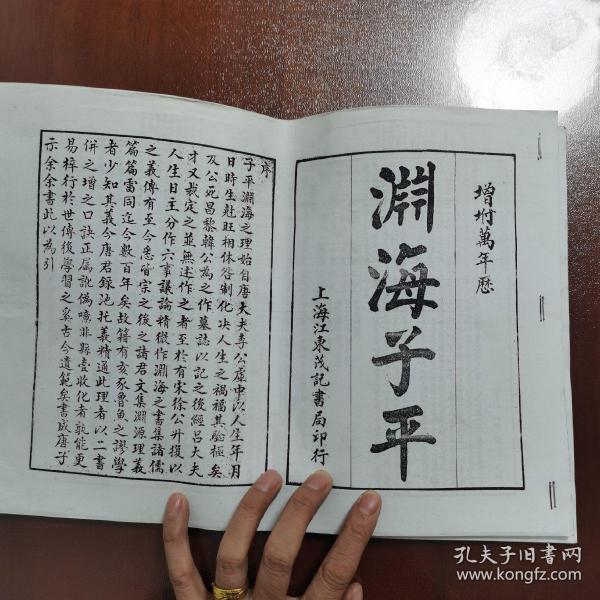 增坿萬年歷
淵海子平
上海江東茂記書局印行
序
子平淵海之理始自唐大夫李公虛中以人生年月
日時生尅旺相休咎制化决人生之禍福其驗極矣
及公死昌黎韓公為之作墓誌以記之後經呂大夫
才又裁定之並無述作之者至於有宋徐公升復以
人生日主分作六事議論精微作淵海之書集諸儒
之義傳有至今悉皆宗之後之諸君文集淵源理義
篇篇雷同迄今數百年矣故籍有亥豕魯魚之謬學
者少知其義今唐君錄池托義精通此理者以二書
併之增之口訣正属訛偽嚱非縣壹收化者孰能更
易梓行於世傳後學習之寔古今遺範矣書成唐子
示余余書此以為引
孔夫子旧书网
www.kongfz.com